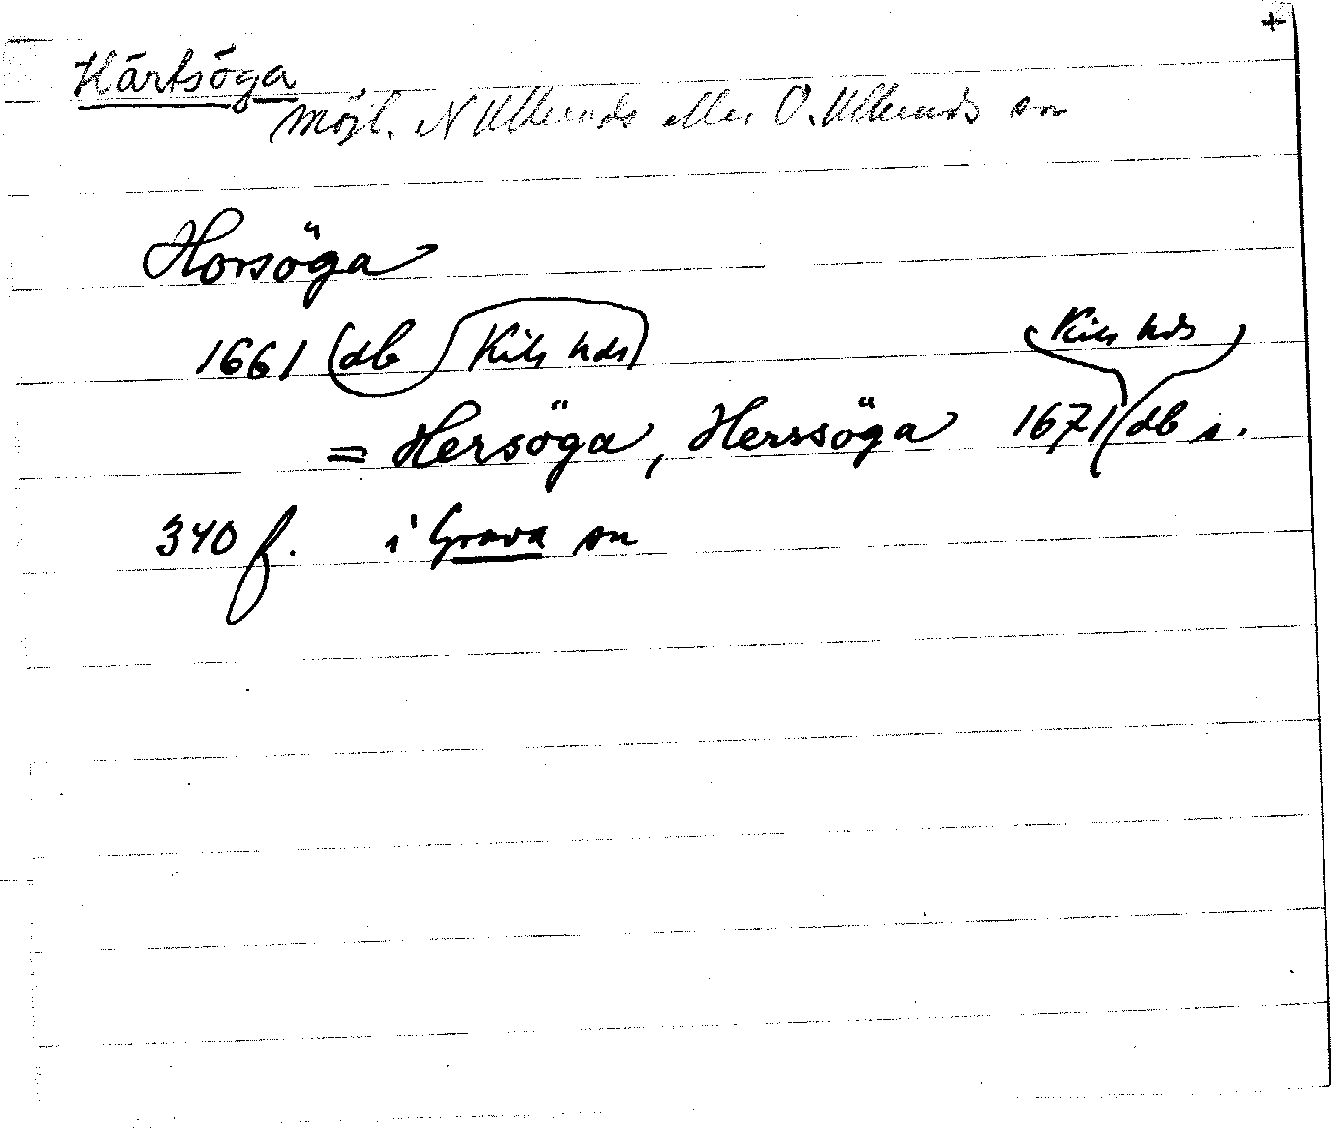 +
Härtsöga
möjl. N Ulleruds eller Ö. Ulleruds sn
Horsöga
1661 (db Kils hds)
Kils hds
= Hersöga, Herrsöga 1671 (db s.
340 f. i Grava sn